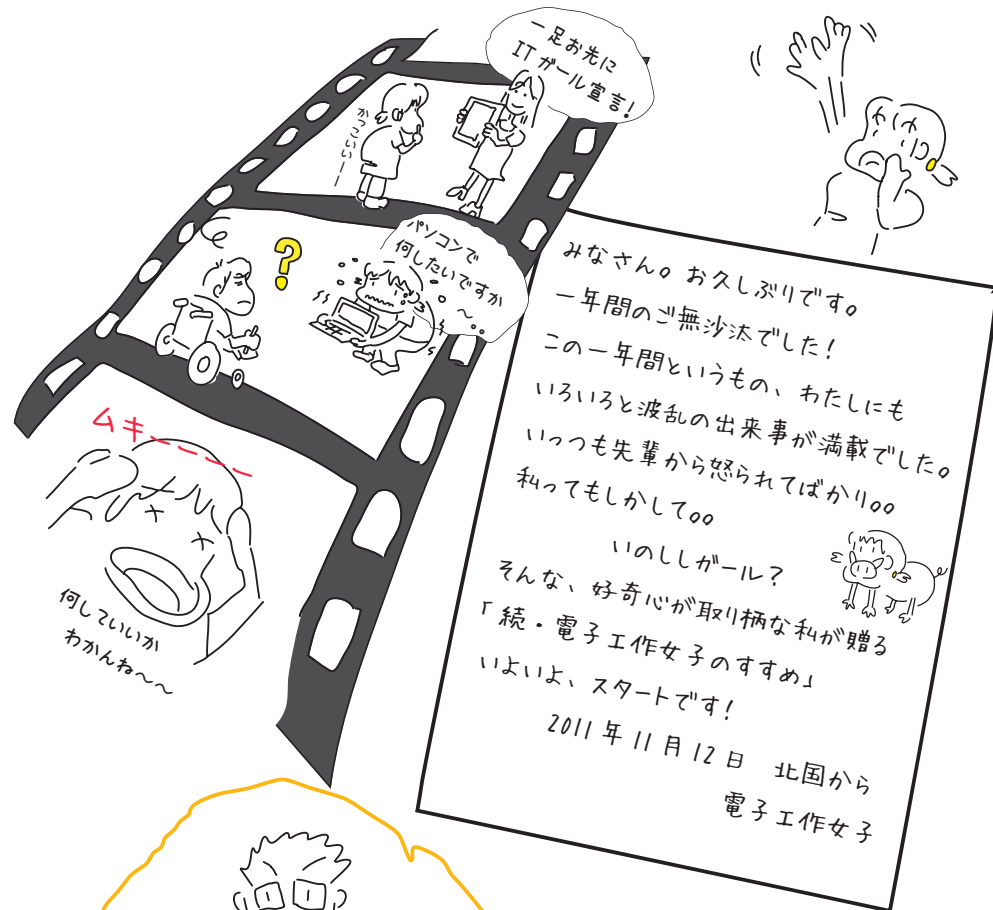 一足お先に
ITガール宣言!
かっこいい――
パソコンで
何したいですか
〜。。
?
ムキーーーー
何していいか
わかんね〜〜
みなさん。お久しぶりです。
一年間のご無沙汰でした!
この一年間というもの、わたしにも
いろいろと波乱の出来事が満載でした。
いっつも先輩から怒られてばかり。。
私ってもしかして。。
いのししガール?
そんな、好奇心が取り柄な私が贈る
「続・電子工作女子のすすめ」
いよいよ、スタートです!
2011年11月12日 北国から
電子工作女子